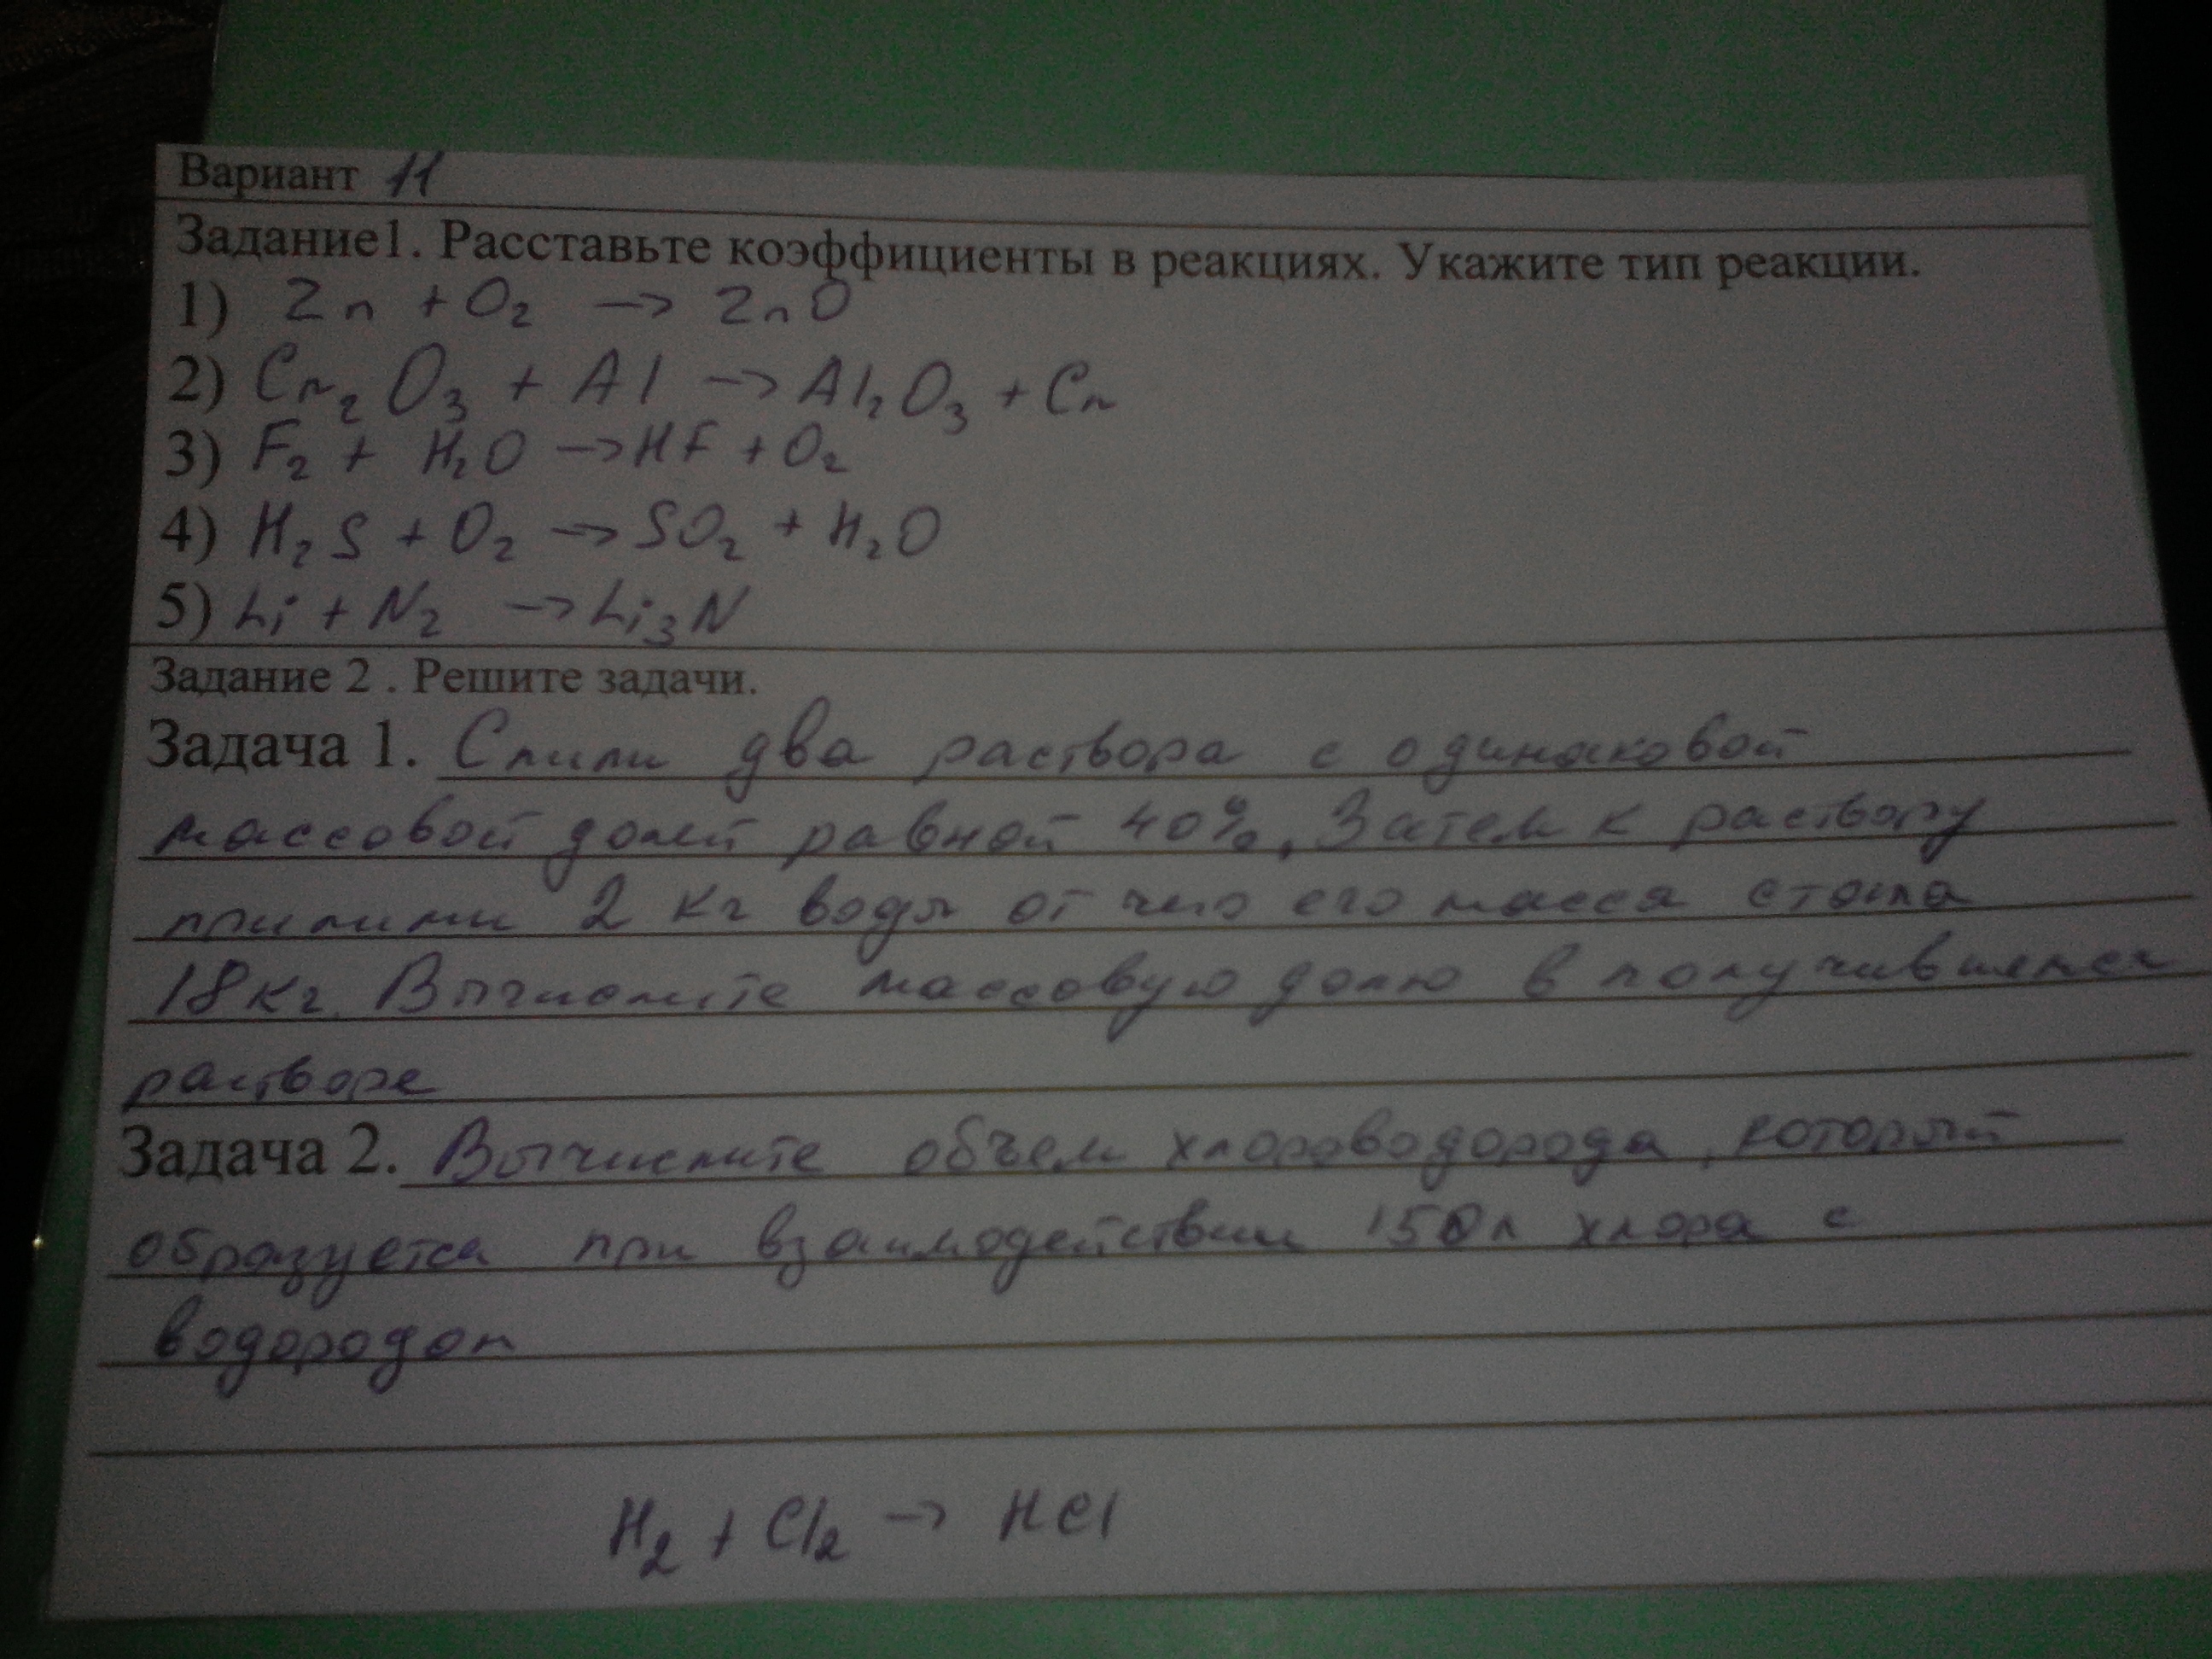 Вариант 11
Задание1. Расставьте коэффициенты в реакциях. Укажите тип реакции.
1) Zn + O₂ → ZnO
2) Cr₂O₃ + Al → Al₂O₃ + Cr
3) F₂ + H₂O → HF + O₂
4) H₂S + O₂ → SO₂ + H₂O
5) Li + N₂ → Li₃N
Задание 2 . Решите задачи.
Задача 1. Слили два раствора с одинаковой
массовой долей равной 40%. Затем к раствору
прилили 2 кг воды от чего его масса стала
18 кг. Вычислите массовую долю в получившемся
растворе
Задача 2. Вычислите объем хлороводорода, который
образуется при взаимодействии 150л хлора с
водородом
H₂ + Cl₂ → HCl